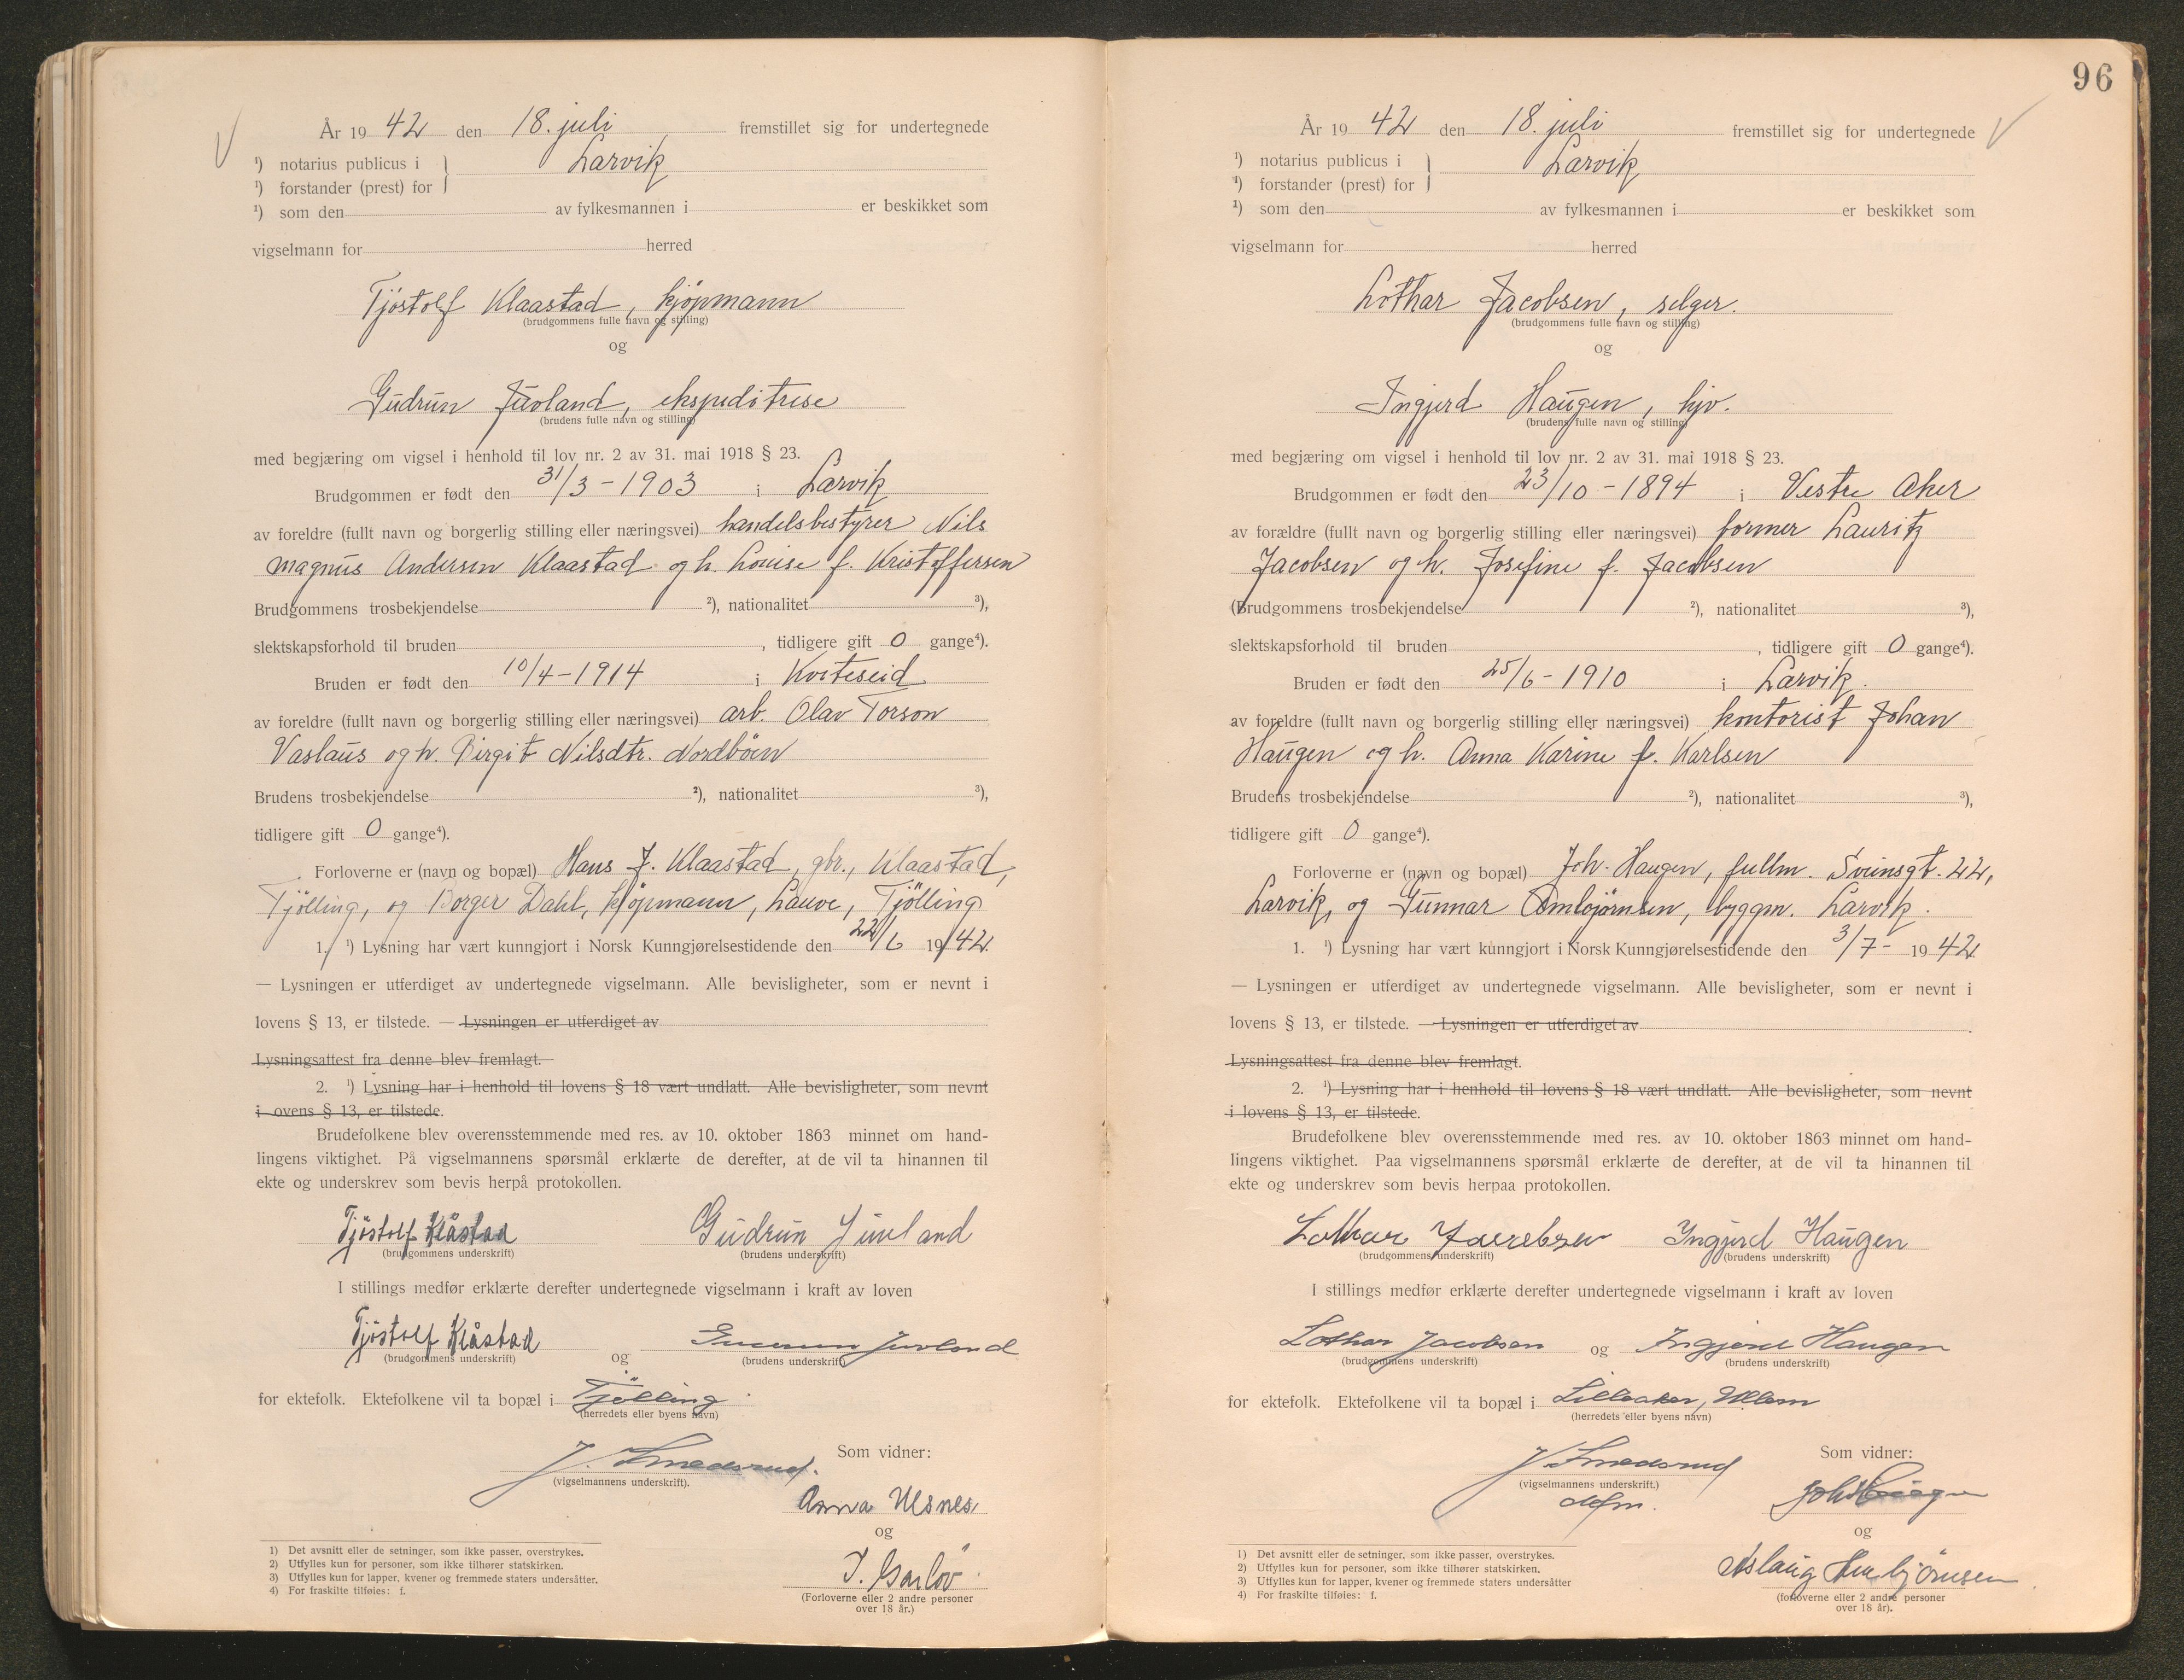 År 19 42 den 18. juli fremstillet sig for undertegnede
¹) notarius publicus i } Larvik
¹) forstander (prest) for
¹) som den av fylkesmannen i er beskikket som
vigselmann for herred
Tjöstolf Klaastad, kjöpmann
(brudgommens fulle navn og stilling)
og
Gudrun Juvland, ekspeditrise
(brudens fulle navn og stilling)
med begjæring om vigsel i henhold til lov nr. 2 av 31. mai 1918 § 23.
Brudgommen er født den 31/3 - 1903 i Larvik
av foreldre (fullt navn og borgerlig stilling eller næringsvei) handelsbestyrer Nils
Magnus Andersen Klaastad og h. Louise f. Kristoffersen
Brudgommens trosbekjendelse ²), nationalitet ³),
slektskapsforhold til bruden , tidligere gift 0 gange⁴).
Bruden er født den 10/4 - 1914 i Kviteseid
av foreldre (fullt navn og borgerlig stilling eller næringsvei) arb. Olav Torson
Vaslaus og h. Birgit Nilsdtr. Nordböen
Brudens trosbekjendelse ²), nationalitet ³),
tidligere gift 0 gange⁴).
Forloverne er (navn og bopæl) Hans J. Klaastad, gbr., Klaastad,
Tjölling, og Borger Dahl, kjöpmann, Lauve, Tjölling
1. ¹) Lysning har vært kunngjort i Norsk Kunngjørelsestidende den 22/6 19 42
— Lysningen er utferdiget av undertegnede vigselmann. Alle bevisligheter, som er nevnt i
lovens § 13, er tilstede. — Lysningen er utferdiget av
Lysningsattest fra denne blev fremlagt.
2. ¹) Lysning har i henhold til lovens § 18 vært undlatt. Alle bevisligheter, som nevnt
i ovens § 13, er tilstede.
Brudefolkene blev overensstemmende med res. av 10. oktober 1863 minnet om hand-
lingens viktighet. På vigselmannens spørsmål erklærte de derefter, at de vil ta hinannen til
ekte og underskrev som bevis herpå protokollen.
Tjöstolf Klåstad Gudrun Juvland
(brudgommens underskrift) (brudens underskrift)
I stillings medfør erklærte derefter undertegnede vigselmann i kraft av loven
Tjöstolf Klåstad og Gudrun Juvland
(brudgommens underskrift) (brudens underskrift)
for ektefolk. Ektefolkene vil ta bopæl i Tjölling
(herredets eller byens navn)
J. Smedsrud. Som vidner:
(vigselmannens underskrift).
Anna Ulsnes
og
(Forloverne eller 2 andre personer
over 18 år.)
1) Det avsnitt eller de setninger, som ikke passer, overstrykes.
2) Utfylles kun for personer, som ikke tilhører statskirken.
3) Utfylles kun for lapper, kvener og fremmede staters undersåtter.
4) For fraskilte tilføies: f.
96
År 19 42 den 18. juli fremstillet sig for undertegnede
¹) notarius publicus i } Larvik
¹) forstander (prest) for
¹) som den av fylkesmannen i er beskikket som
vigselmann for herred
Lothar Jacobsen, selger.
(brudgommens fulle navn og stilling)
og
Ingjerd Haugen, hjv.
(brudens fulle navn og stilling)
med begjæring om vigsel i henhold til lov nr. 2 av 31. mai 1918 § 23.
Brudgommen er født den 23/10 - 1894 i Vestre Aker
av forældre (fullt navn og borgerlig stilling eller næringsvei) former Lauritz
Jacobsen og h. Josefine f. Jacobsen
(Brudgommens trosbekjendelse ²), nationalitet ³),
slektskapsforhold til bruden , tidligere gift 0 gange⁴).
Bruden er født den 25/6 - 1910 i Larvik.
av foreldre (fullt navn og borgerlig stilling eller næringsvei) kontorist Johan
Haugen og h. Anna Karine f. Karlsen
Brudens trosbekjendelse ²), nationalitet ³),
tidligere gift 0 gange⁴).
Forloverne er (navn og bopæl) Joh. Haugen, fullm. Sveinsgt. 22,
Larvik, og Gunnar Ambjørnsen, byggm. Larvik.
1. ¹) Lysning har vært kunngjort i Norsk Kunngjørelsestidende den 3/7 - 19 42
— Lysningen er utferdiget av undertegnede vigselmann. Alle bevisligheter, som er nevnt i
lovens § 13, er tilstede. — Lysningen er utferdiget av
Lysningsattest fra denne blev fremlagt.
2. ¹) Lysning har i henhold til lovens § 18 vært undlatt. Alle bevisligheter, som nevnt
i lovens § 13, er tilstede.
Brudefolkene blev overensstemmende med res. av 10. oktober 1863 minnet om hand-
lingens viktighet. Paa vigselmannens spørsmål erklærte de derefter, at de vil ta hinannen til
ekte og underskrev som bevis herpaa protokollen.
Lothar Jacobsen Ingjerd Haugen
(brudgommens underskrift) (brudens underskrift)
I stillings medfør erklærte derefter undertegnede vigselmann i kraft av loven
Lothar Jacobsen og Ingjerd Haugen
(brudgommens underskrift) (brudens underskrift)
for ektefolk. Ektefolkene vil ta bopæl i Lilleaker, Ullern
(herredets eller byens navn)
J. Smedsrud Som vidner:
(vigselmannens underskrift.)
Joh Haugen
og
Aslaug Ambjörnsen
(forloverne eller 2 andre personer
over 18 år).
1) Det avsnitt eller de setninger, som ikke passer, overstrykes.
2) Utfylles kun for personer, som ikke tilhører statskirken.
3) Utfylles kun for lapper, kvener og fremmede staters undersåtter
4) For fraskilte tilføies: f.